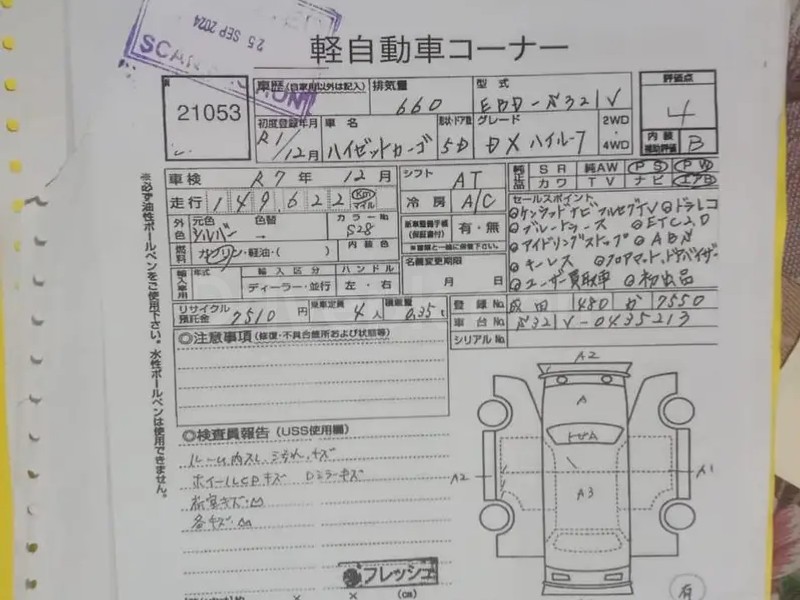 25 SEP 2024
軽自動車コーナー
21053
車歴(自家用以外は記入)
排気量
660
型式
EBD-S321V
評価点
4
初度登録年月
R1/12月
車名
ハイゼットカーゴ
形状・ドア数
5D
グレード
DX ハイルーフ
2WD
4WD
内装
補助評価
B
車検
R7年 12月
シフト
AT
純正品
SR
純AW
PS
PW
カワ
TV
ナビ
エアB
走行
149622
Km
マイル
冷房
A/C
セールスポイント
外色
元色
シルバー
色替
→
カラーNo
S28
新車整備手帳
(保証書付)
有・無
※書類と一緒に保管下さい。
ケンウッドナビ フルセグTV ドラレコ
ETC2.0
アイドリングストップ ABS
キーレス フロアマット,ドアバイザー
ユーザー買取車 初出品
燃料
ガソリン・軽油・( )
内装色
名義変更期限
月 日
輸入車用
年式
輸入区分
ディーラー・並行
ハンドル
左・右
リサイクル
預託金
7510円
乗車定員
4人
積載量
0.35t
登録No.
成田 480 か 7550
車台No.
S321V-0435213
シリアルNo.
◎注意事項(修復・不具合箇所および状態等)
※必ず油性ボールペンをご使用下さい。水性ボールペンは使用できません。
◎検査員報告(USS使用欄)
ルーム内スレ,汚れ,キズ
ホイールCPキズ Dミラーキズ
A2
A
トビA
A3
A2
A1
フレッシュ
(cm)
有